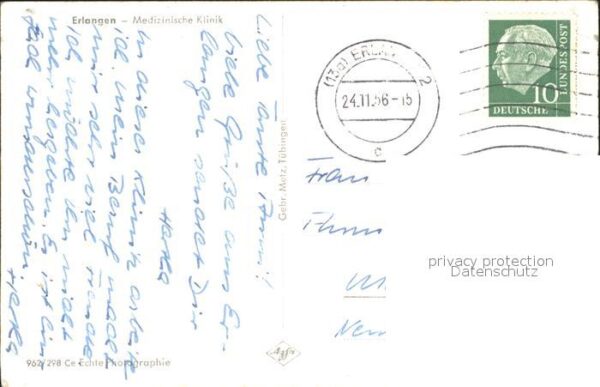 Erlangen – Medizinische Klinik
Liebe Tante Anni!
Viele Grüße aus Er-
langen sendet Dir
Herta
In dieser Klinik arbeite
ich. Mein Beruf macht
mir sehr viel Freude
Ich möchte ihn nicht
mehr hergeben. Es ist ein-
fach wunderschön. Herta
Gebr. Metz, Tübingen
962/298 Ce Echte Photographie
Agfa
(13a) ERLAN
2
24.11.56-15
c
DEUTSCHE BUNDESPOST
10
Frau
privacy protection
Datenschutz